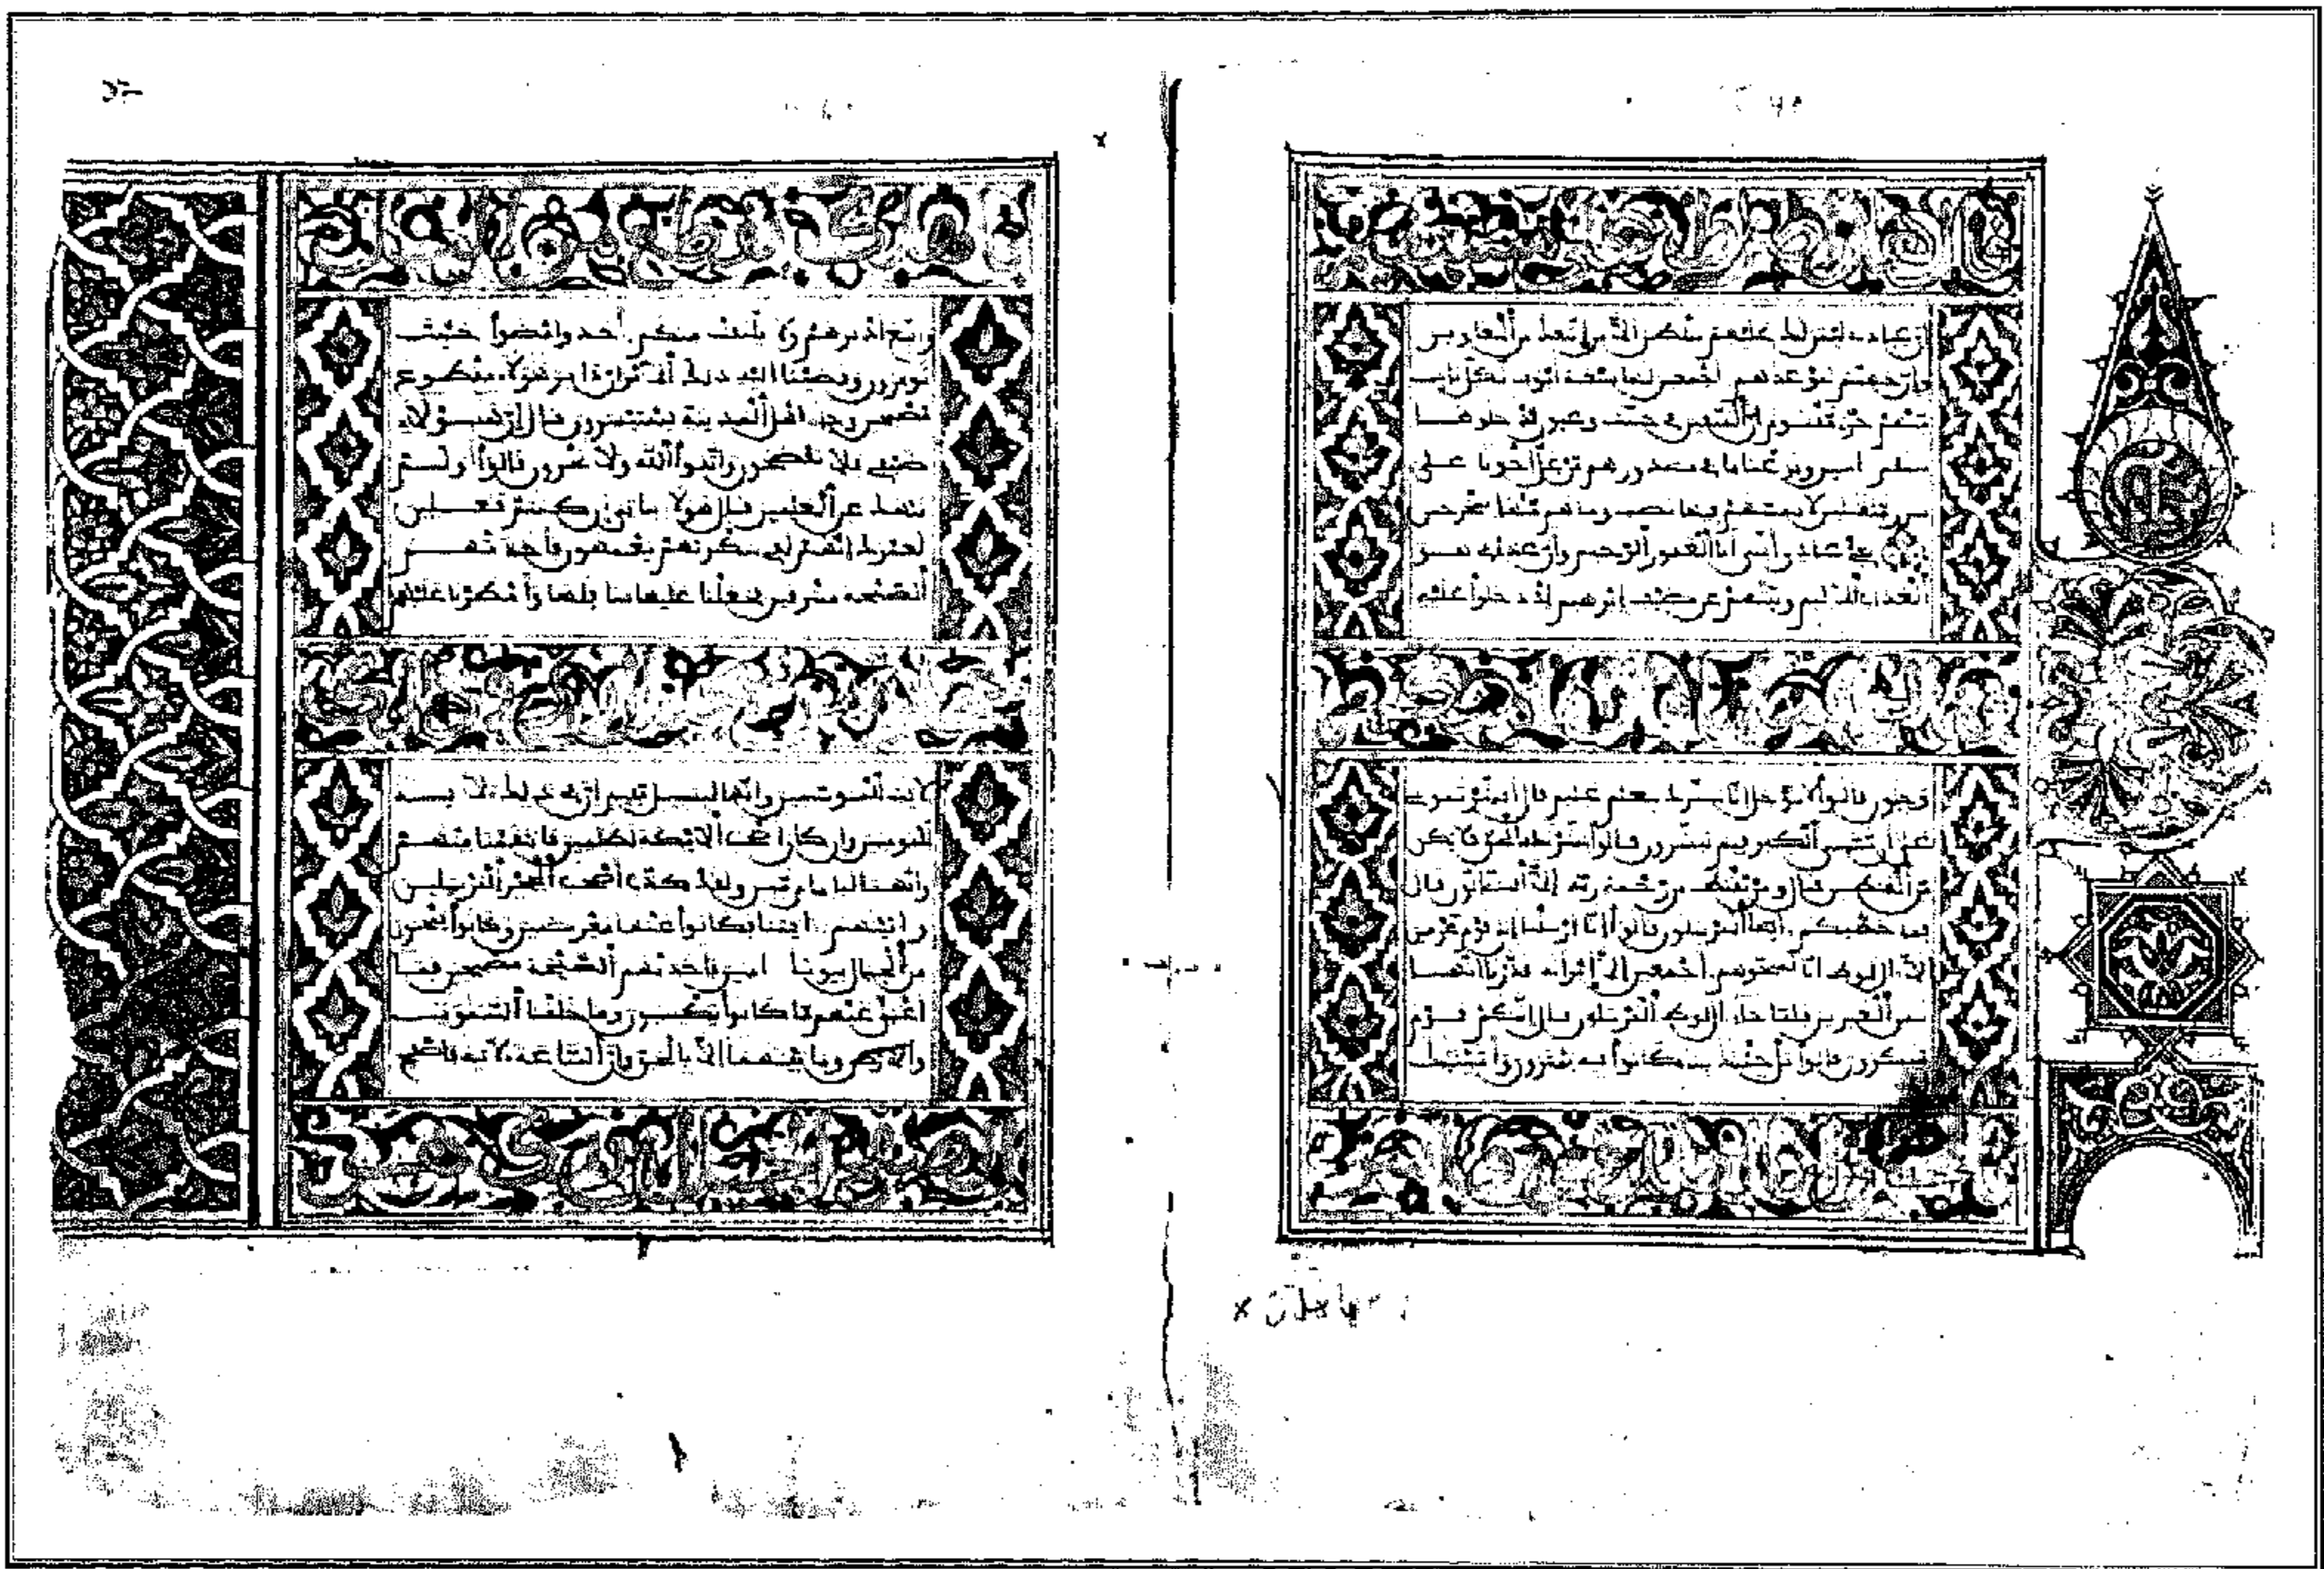 ان عبادى ليس لك عليهم سلطن الا من اتبعك من الغاوين
وان جهنم لموعدهم اجمعين لها سبعة ابوب لكل باب
منهم جزء مقسوم ان المتقين فى جنت وعيون ادخلوها
بسلم امنين ونزعنا ما فى صدورهم من غل اخونا على
سرر متقبلين لا يمسهم فيها نصب وما هم منها بمخرجين
عبادى انى انا الغفور الرحيم وان عذابى هو
العذاب الاليم ونبئهم عن ضيف ابرهيم اذ دخلوا عليه
وجلون قالوا لا توجل انا نبشرك بغلم عليم قال ابشرتمونى
على ان مسنى الكبر فبم تبشرون قالوا بشرنك بالحق فلا تكن
من القنطين قال ومن يقنط من رحمة ربه الا الضالون قال
فما خطبكم ايها المرسلون قالوا انا ارسلنا الى قوم مجرمين
الا ال لوط انا لمنجوهم اجمعين الا امراته قدرنا انها
لمن الغبرين فلما جاء ال لوط المرسلون قال انكم قوم
منكرون قالوا بل جئنك بما كانوا فيه يمترون واتينك
واتبع ادبرهم ولا يلتفت منكم احد وامضوا حيث
تومرون وقضينا اليه ذلك الامر ان دابر هولاء مقطوع
مصبحين وجاء اهل المدينة يستبشرون قال ان هولاء
ضيفى فلا تفضحون واتقوا الله ولا تخزون قالوا اولم
ننهك عن العلمين قال هولاء بناتى ان كنتم فعلين
لعمرك انهم لفى سكرتهم يعمهون فاخذتهم
الصيحة مشرقين فجعلنا عليها سافلها وامطرنا عليهم
لايت للمتوسمين وانها لبسبيل مقيم ان فى ذلك لاية
للمومنين وان كان اصحب الايكة لظلمين فانتقمنا منهم
وانهما لبامام مبين ولقد كذب اصحب الحجر المرسلين
واتينهم ايتنا فكانوا عنها معرضين وكانوا ينحتون
من الجبال بيوتا امنين فاخذتهم الصيحة مصبحين فما
اغنى عنهم ما كانوا يكسبون وما خلقنا السموت
والارض وما بينهما الا بالحق وان الساعة لاتية فاصفح